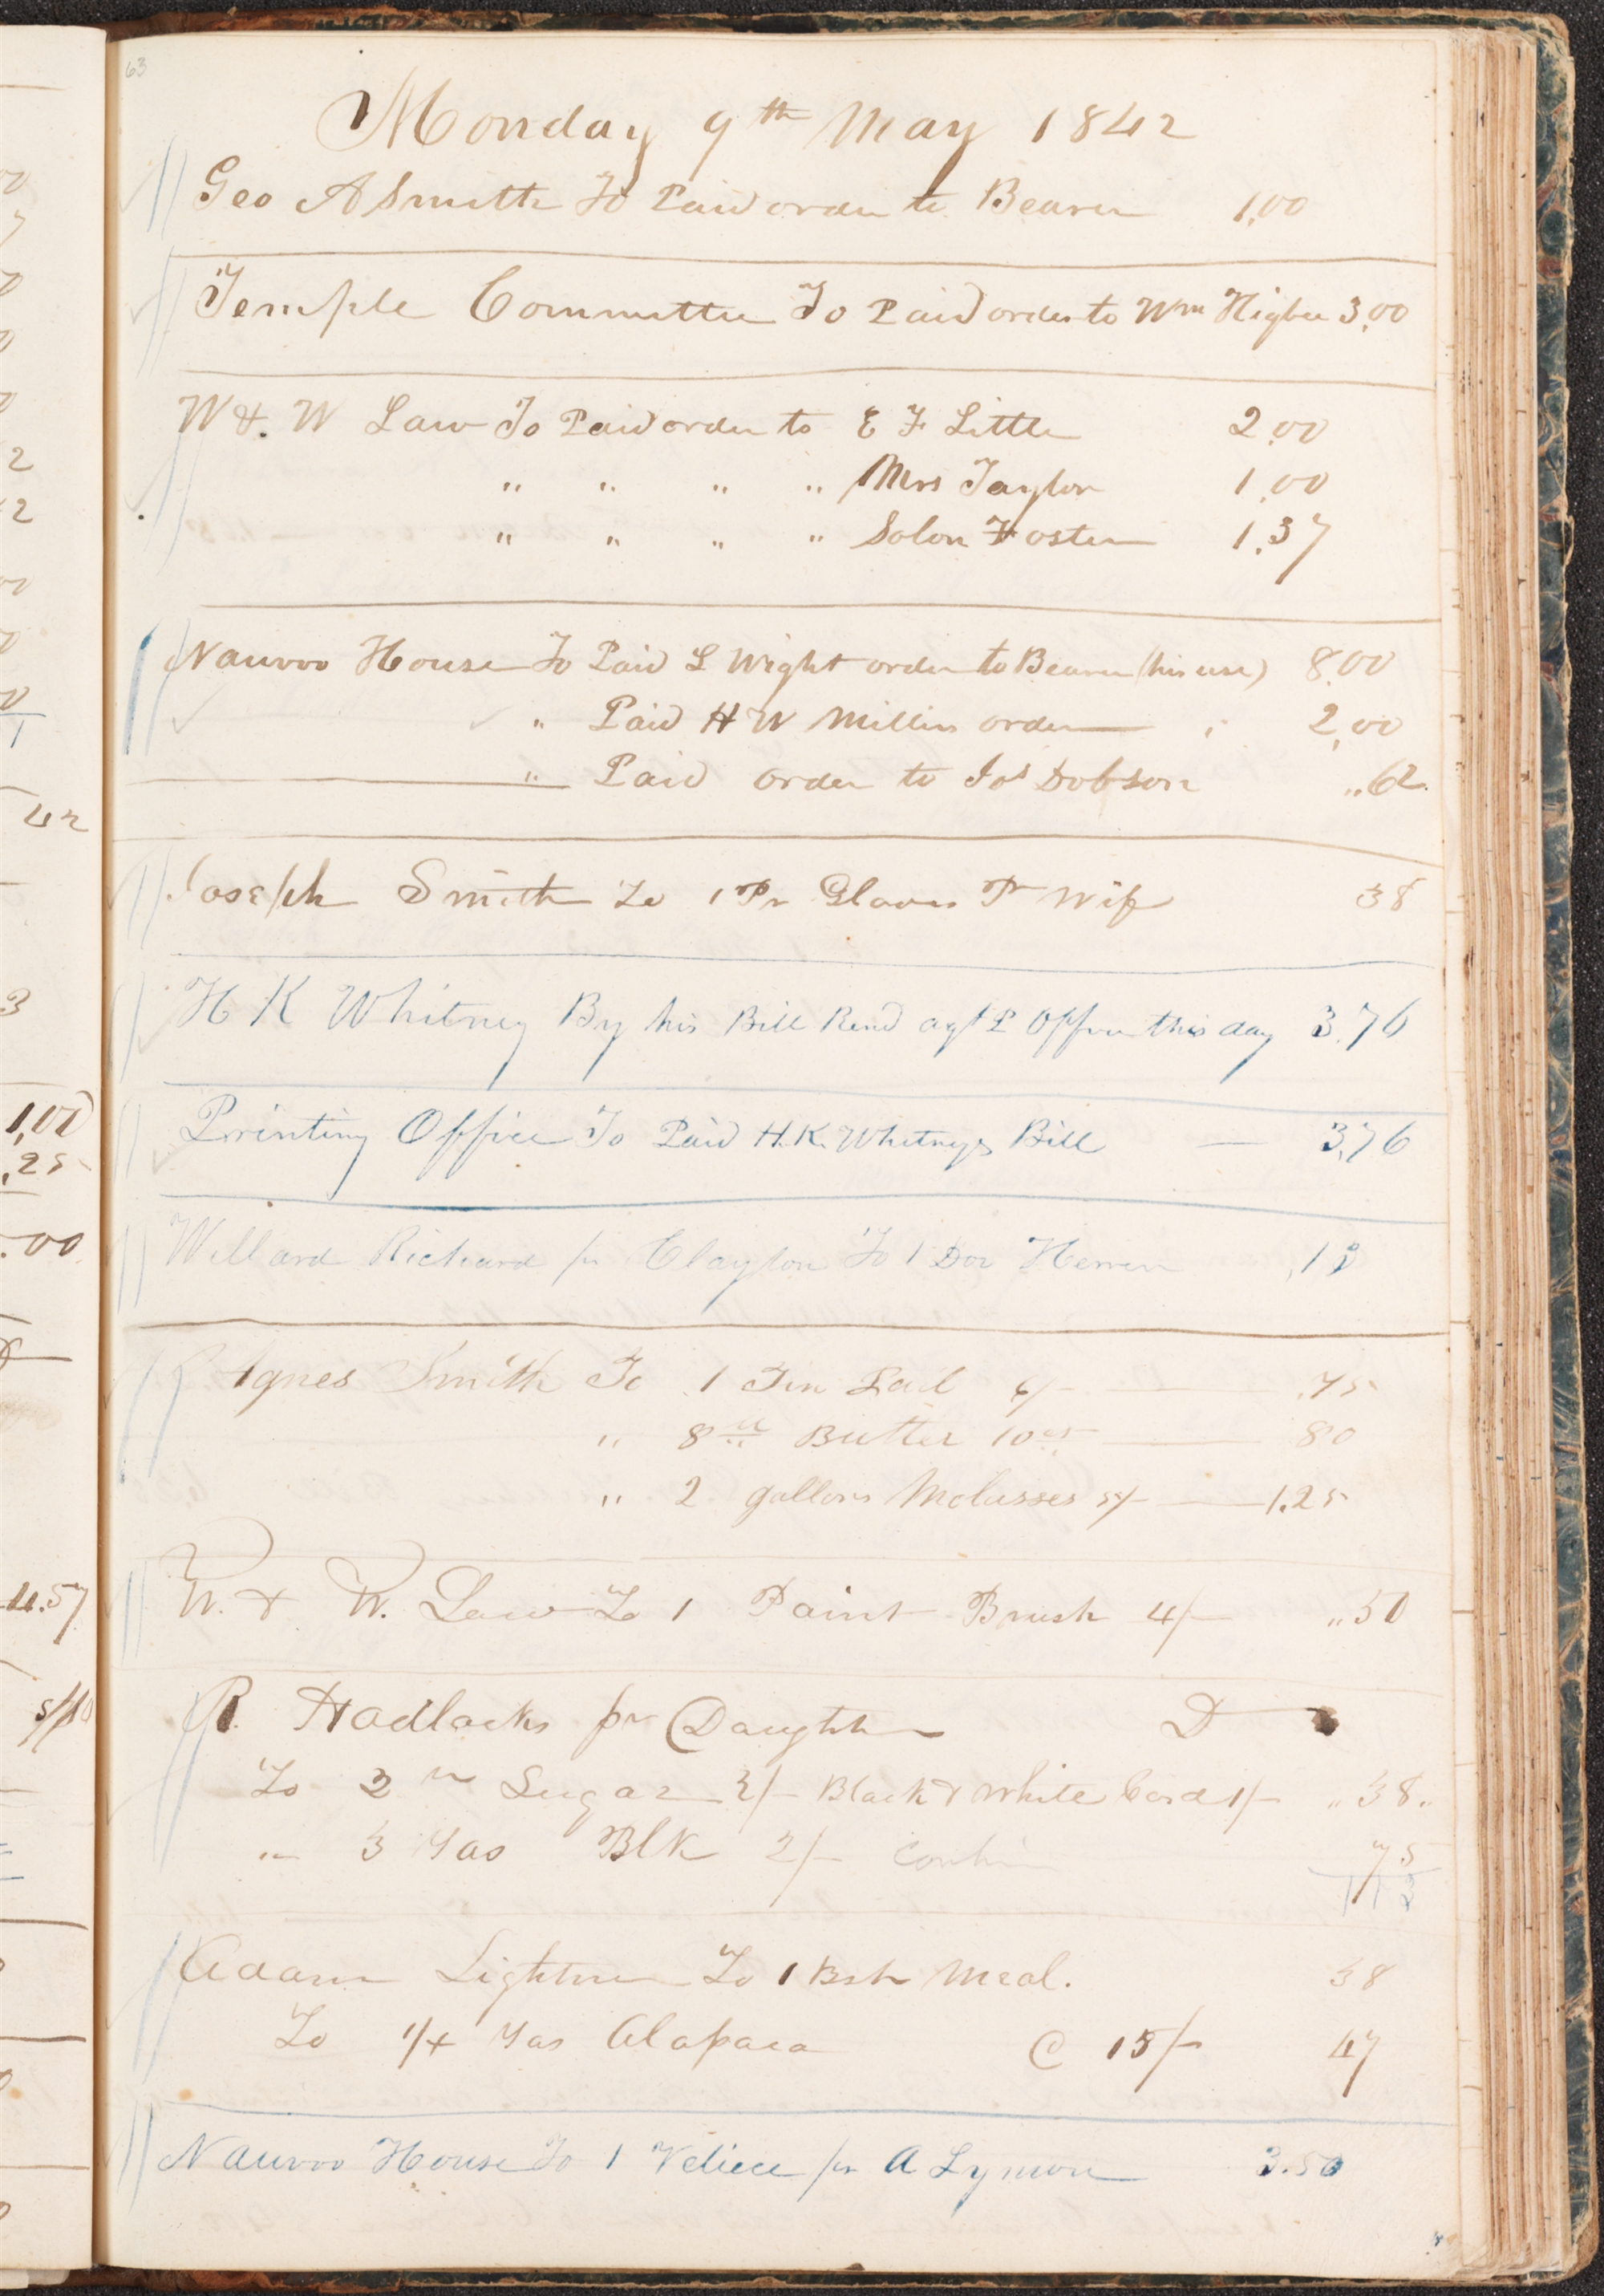 63
Monday 9th May 1842
Geo A Smith To Paid order to Bearer 1,00
Temple Committee To Paid order to Wm Higbee 3,00
W & W Law To Paid order to E F Little 2,00
" " " " Mrs Taylor 1,00
" " " " Solon Foster 1,37
Nauvoo House To Paid L Wight order to Bearer (his use) 8,00
" Paid H W Millers order 2,00
" Paid order to Jos Dobson "62
Joseph Smith To 1 Pr Gloves Pr Wife 38
H K Whitney By his Bill Rend agt P Office this day 3.76
Printing Office To Paid H.K. Whitneys Bill — 3,76
Willard Richard pr Clayton To 1 Doz
Agnes Smith To 1 Tin Pail 6/- .75
" 8 lb Butter 10cts 80
" 2 gallons Molasses 5/- 1.25
W. & W. Law To 1 Paint Brush 4/- "50
R Hadlocks pr Daughter D
To 2 lb Sugar 2/- Black & White Cord 1/- "38"
" 3 Yds Blk 2/- 75
Adam Lightner To 1 Bsh Meal. 38
To 1/4 Yas Alapaca @ 15/- 47
Nauvoo House To 1 pr A Lymon 3.50